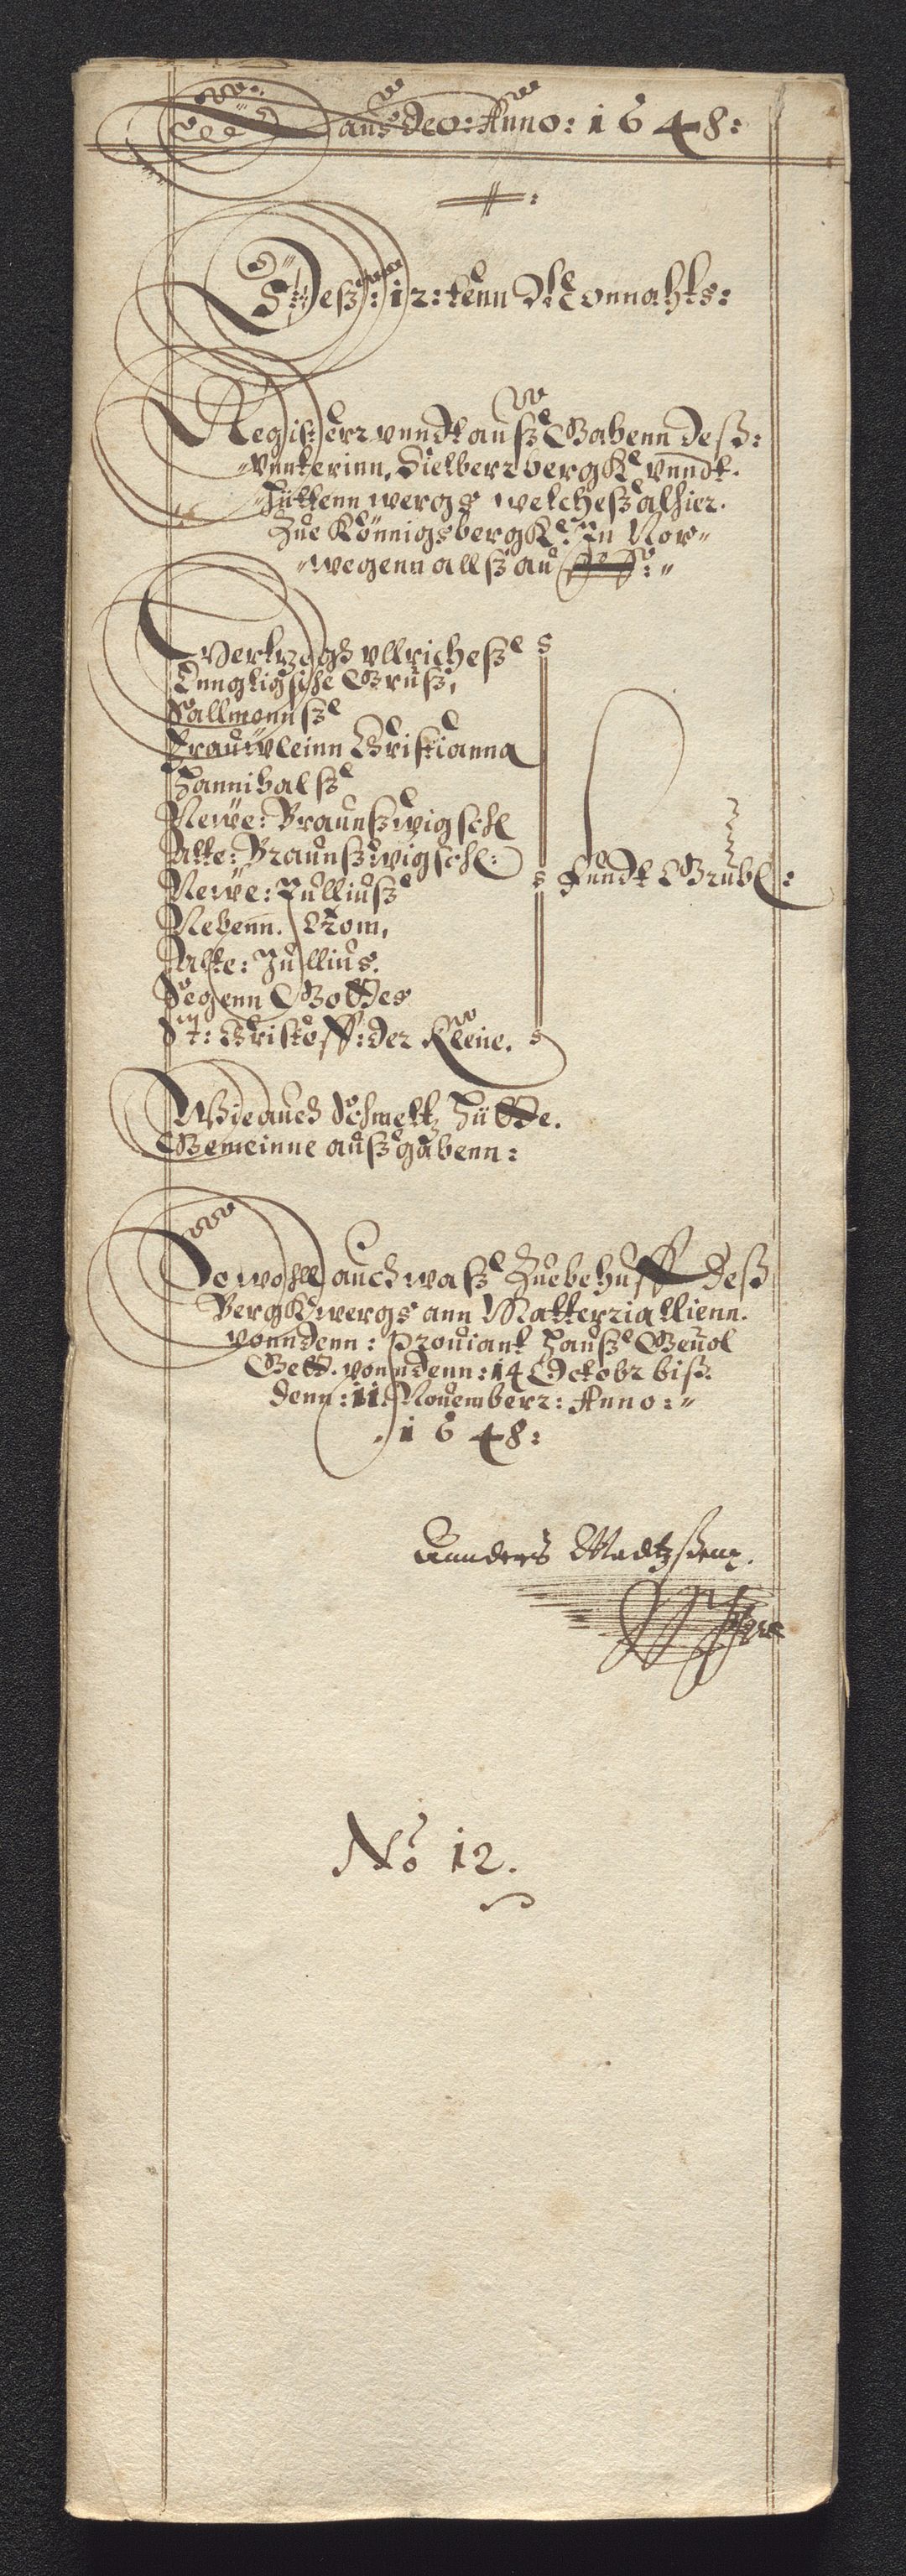 Laus deo: Anno: 1648:
Deß: 12: tenn Monnahts:
Registerr vnndt auß Gabenn deß:
vnterinn, Sielberr bergK vnndt.
Hüttenn wergs welcheß alhier.
Zue Königsbergk: In Nor=
=wegenn allß an
Hertzogh Vllricheß
Knngligsche Gruß,
Sallmonnß
Frauwleinn Cristianna
Hannibalß
Newe: Braunßwigsche
Alte: Braunßwigsche:
Fundt Grube:
Newe: Julliuß
Nebenn. Trom,
Alte: Jullius.
Segenn Gottes
St: Cristoff: der Kleine.
Wie auch Schmeltz Hütte.
Gemeinne außgabenn:
So wohll auch waß Zuebehuff deß
BergKwergs ann Matterriallienn.
vonn denn: Prouiant Hauß
Gett. vonn denn: 14 Octobr biß.
denn: 11. Nouemberr: Anno:=
1648:
Annders Madtzßenn.
No 12.